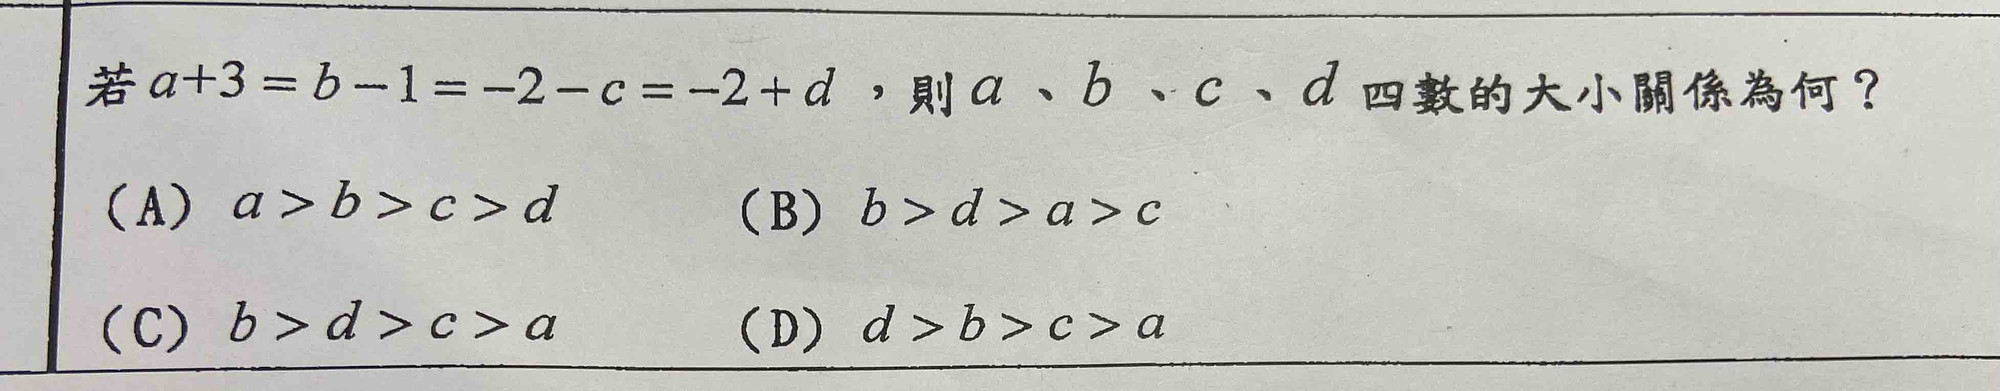 若 a+3=b-1=-2-c=-2+d，則 a、b、c、d 四數的大小關係為何？
(A) a>b>c>d (B) b>d>a>c
(C) b>d>c>a (D) d>b>c>a